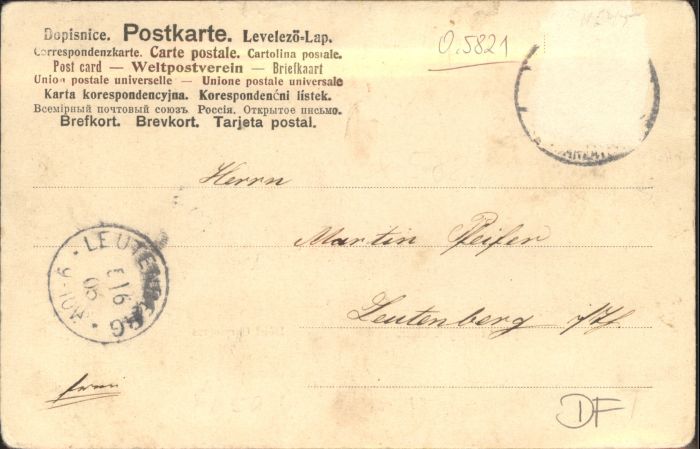 Dopisnice. Postkarte. Levelező-Lap.
Correspondenzkarte. Carte postale. Cartolina postale.
Post card — Weltpostverein — Briefkaart
Union postale universelle — Unione postale universale
Karta korespondencyjna. Korespondenční lístek.
Всемірный почтовый союзъ Россія. Открытое письмо.
Brefkort. Brevkort. Tarjeta postal.
0.5821
Herrn
Martin Pfeifer
Leutenberg
LEUTENBERG
DF